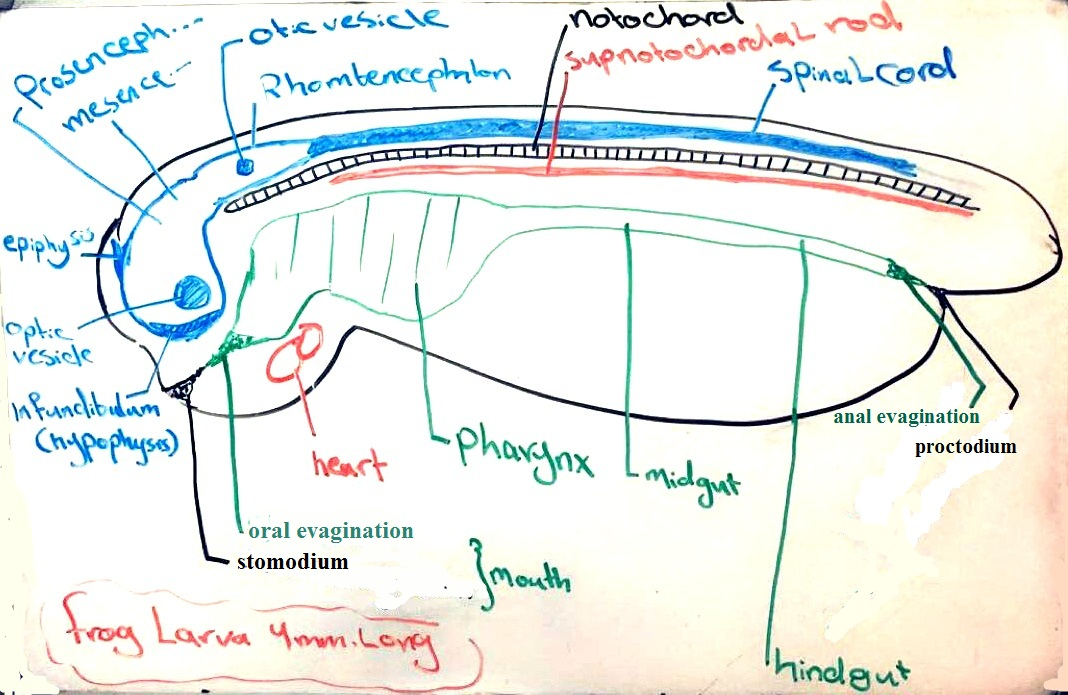 Prosenceph...
mesence...
otic vesicle
Rhombencephlon
notochord
supnotochordal rod
spinal cord
epiphysis
optic
vesicle
Infundibulum
(hypophysis)
heart
pharynx
midgut
anal evagination
proctodium
oral evagination
stomodium
} mouth
frog Larva 4mm.Long
hindgut